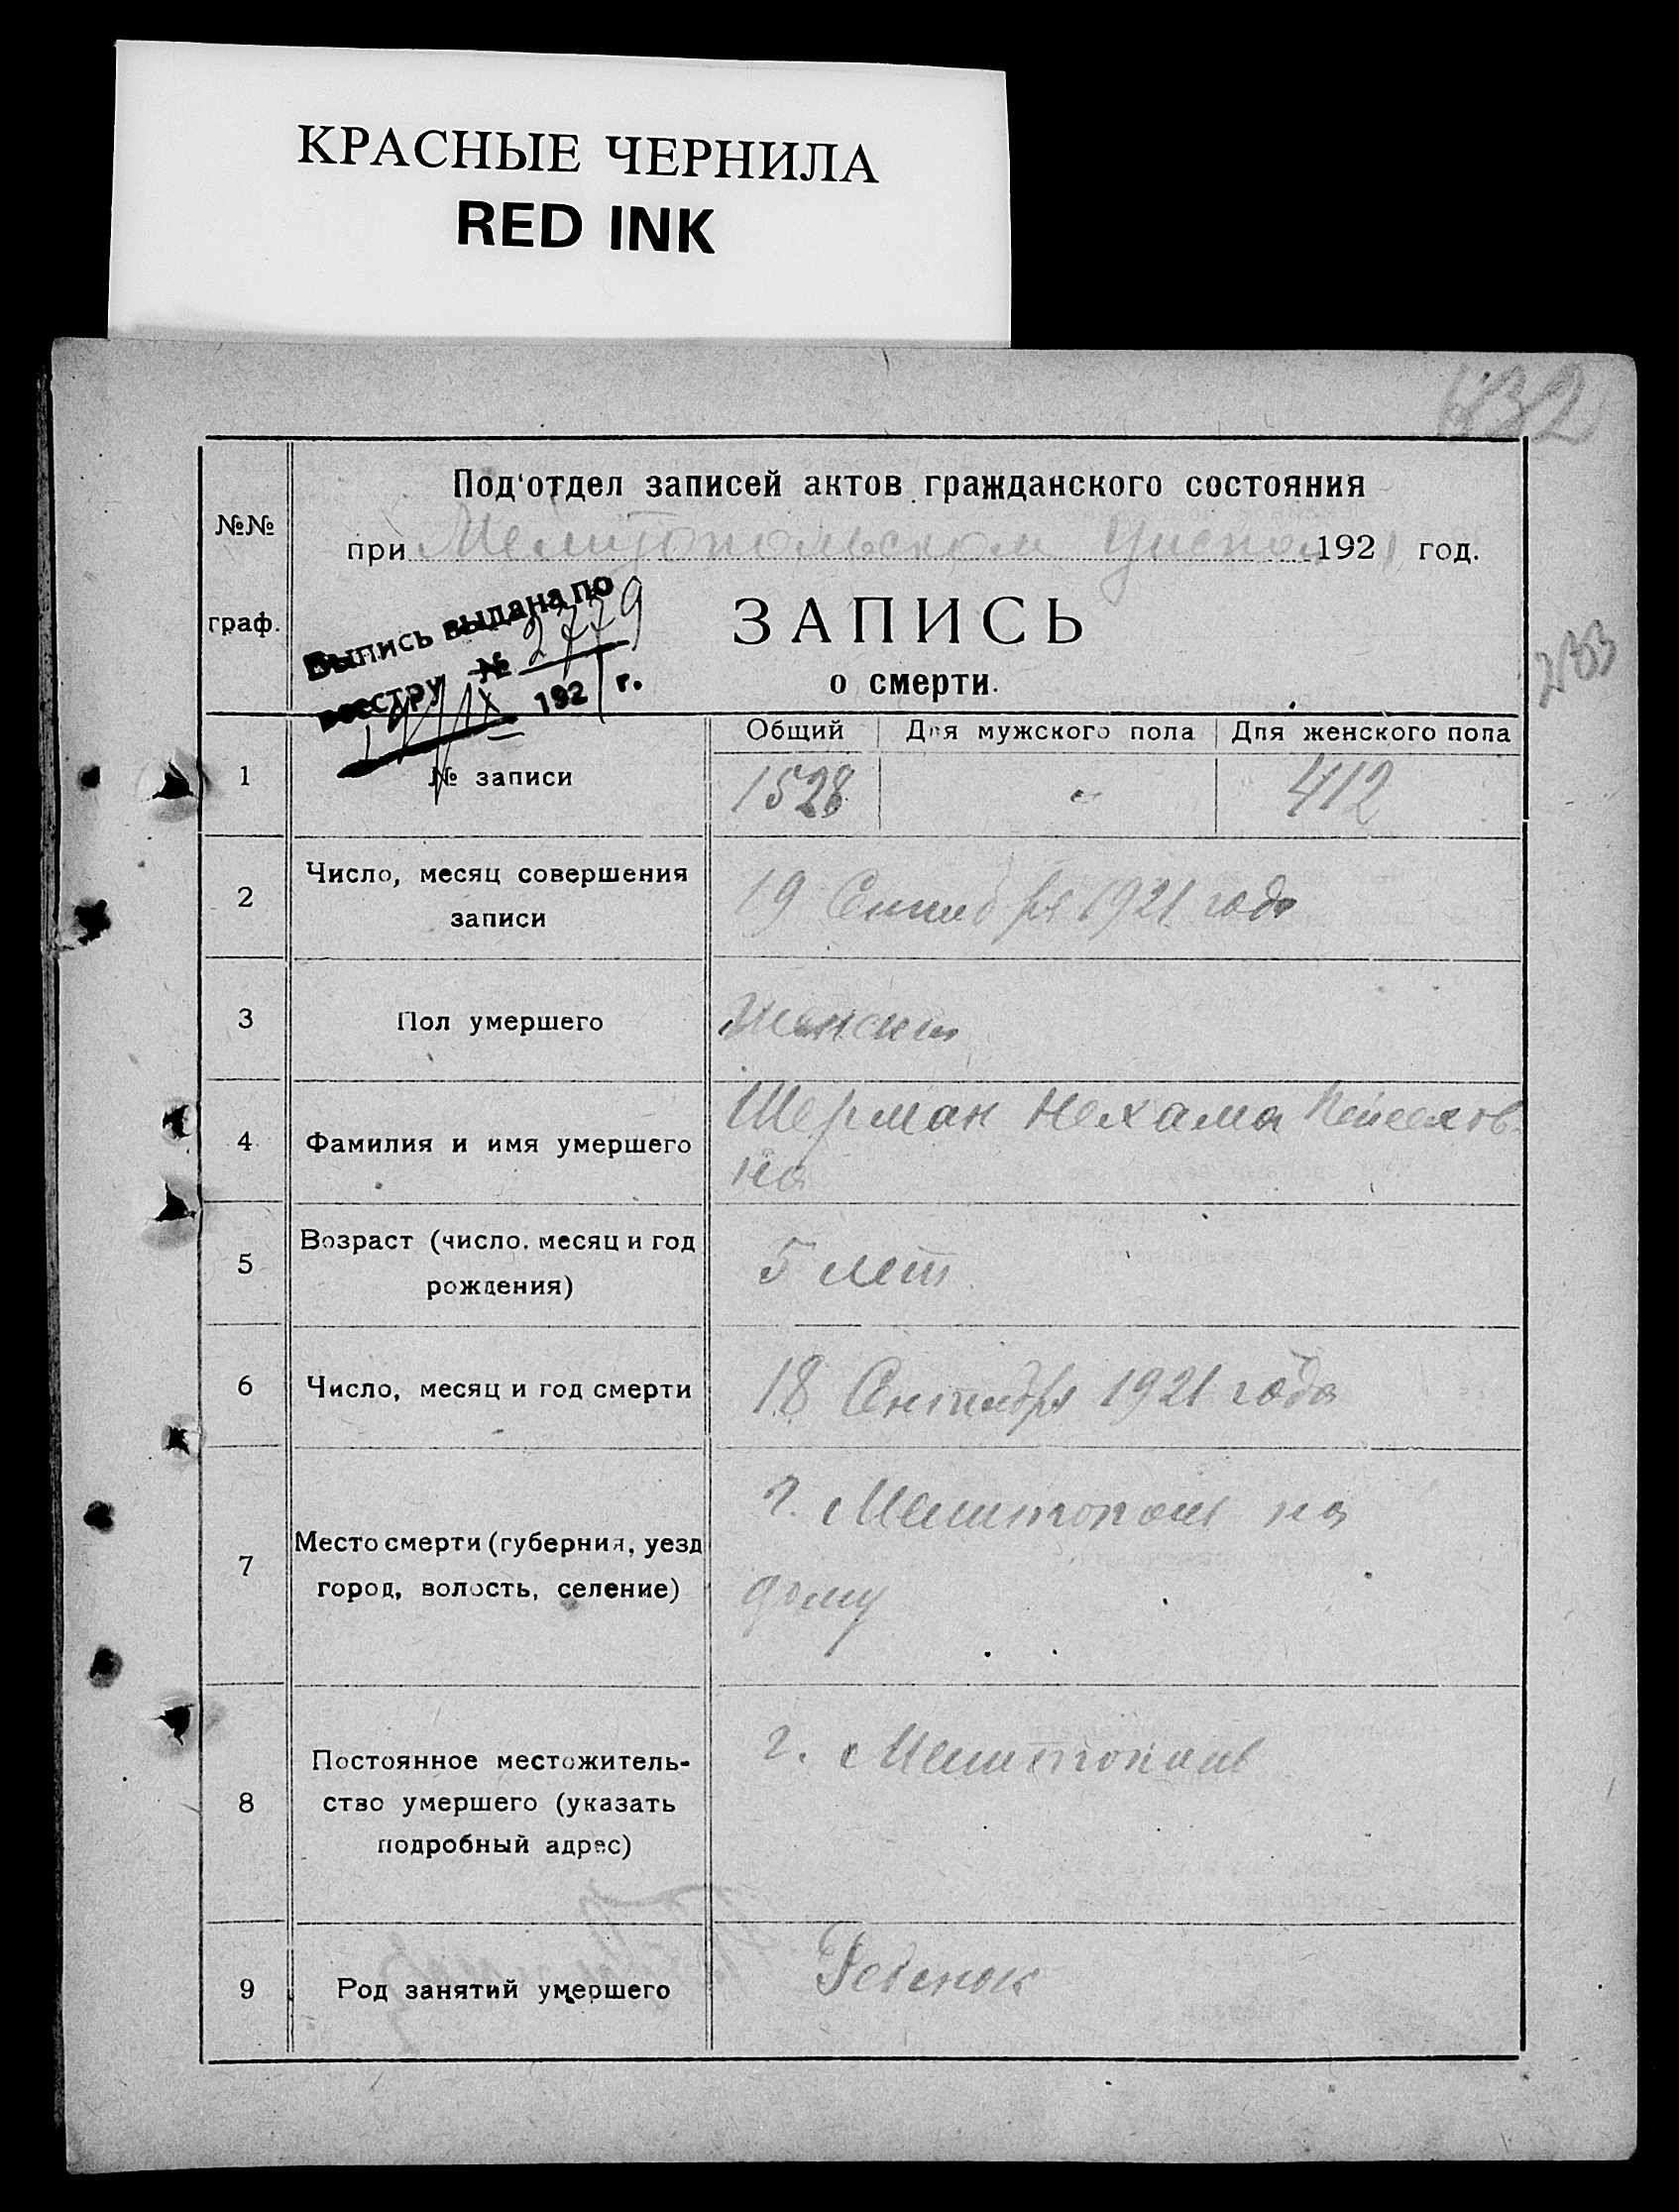 КРАСНЫЕ ЧЕРНИЛА
RED INK
832
Под'отдел записей актов гражданского состояния
№№
при Мелитопольском 1921 год.
граф.
Выпись выдана по
реестру № 2779
192 г.
ЗАПИСЬ
о смерти.
Общий Для мужского пола Для женского пола
1 № записи 1528 - 412
2 Число, месяц совершения
записи
19 Сентября 1921 года
3 Пол умершего Женский
4 Фамилия и имя умершего
Шерман Нехама Пейсехов-
на
5 Возраст (число, месяц и год
рождения)
5 лет
6 Число, месяц и год смерти 18 Сентября 1921 года
7 Место смерти (губерния, уезд
город, волость, селение)
г. Мелитополь на
дому
8 Постоянное местожитель-
ство умершего (указать
подробный адрес)
г. Мелитополь
9 Род занятий умершего Ребенок